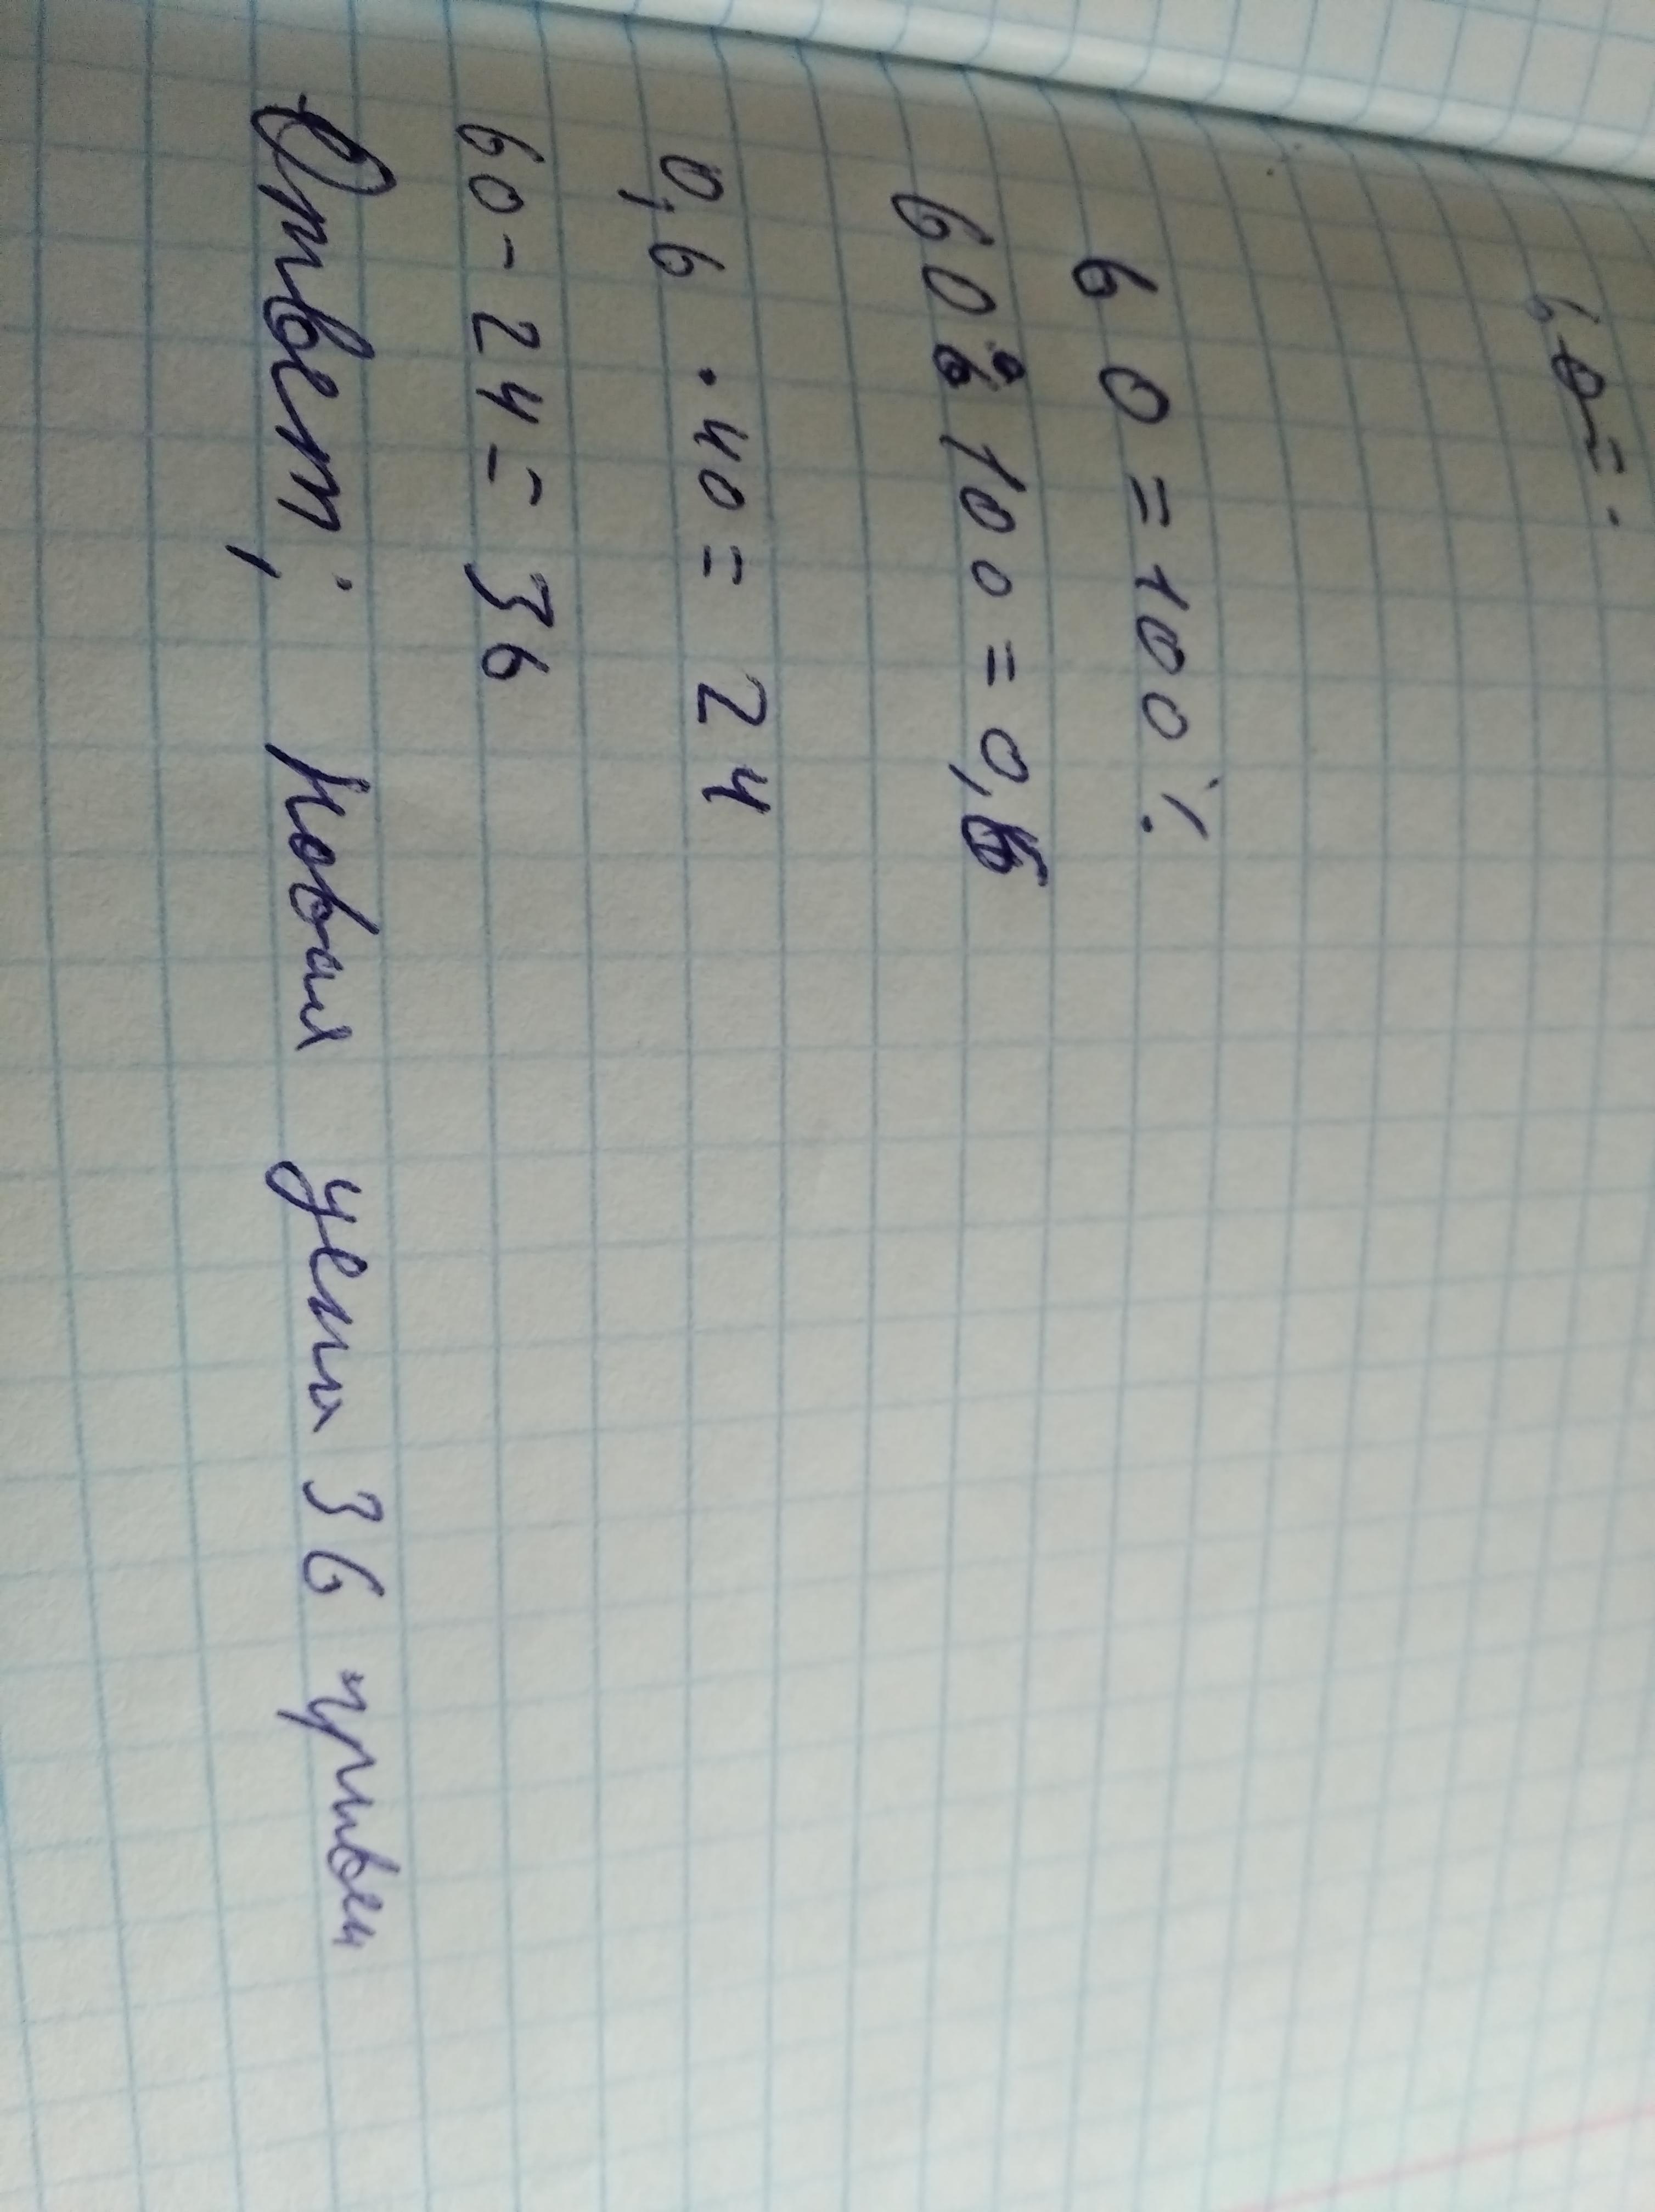 60 = 100%
60 : 100 = 0,6
0,6 · 40 = 24
60 - 24 = 36
Ответ; новая цена 36 гривен